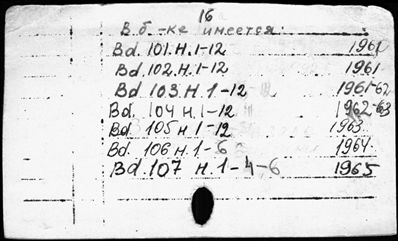 16
В б-ке имеется:
Bd. 101. H. 1-12 1961
Bd. 102. H. 1-12 1961
Bd. 103. H. 1-12 1961-62
Bd. 104 H. 1-12 1962-63
Bd. 105 H. 1-12 1963
Bd. 106 H. 1-6 1964
Bd. 107 H. 1-4-6 1965